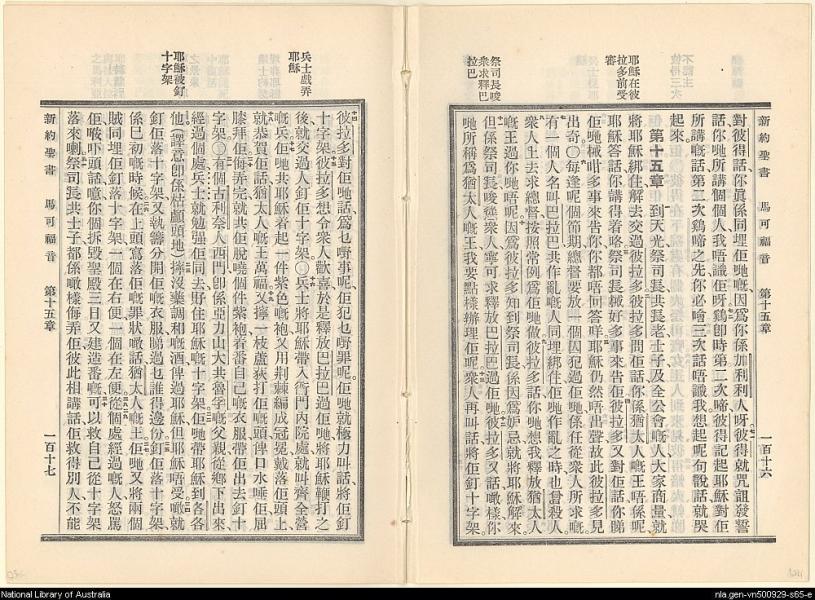 新約聖書 馬可福音 第十五章 一百十六
耶穌在彼
拉多前受
審
祭司長唆
衆求釋巴
拉巴
對彼得話、你眞係同埋佢哋嘅、因爲你係加利利人呀、彼得就咒詛發誓
話、你哋所講個個人、我唔識佢呀、鷄卽時第二次啼、彼得記起耶穌對佢
所講嘅話、第二次鷄啼之先、你必噲三次話唔識我、想起呢句說話、就哭
起來。
第十五章 到天光、祭司長共長老士子、及全公會嘅人、大家商量、就
將耶穌綁住、解去交過彼拉多、彼拉多問佢話、你係猶太人嘅王唔係呢、
耶穌答話、你講得着咯、祭司長械好多事來告佢、彼拉多又對佢話、你睇
佢哋械咁多事來告你、你都唔回答咩、耶穌仍然唔出聲、故此彼拉多見
出奇。每逢呢個節期、總督要放一個囚犯過佢哋、係任從衆人所求嘅、
有一個人名叫巴拉巴、共作亂嘅人、同埋綁住、佢哋作亂之時、也曾殺人、
衆人上去求總督、按照常例爲佢哋做、彼拉多話、你哋想我釋放猶太人
嘅王過你哋唔呢、因爲彼拉多知到祭司長係因爲妒忌、就將耶穌解來。
但係祭司長唆聳衆人、寧可求釋放巴拉巴過佢哋、彼拉多又話、噉樣、你
哋所稱爲猶太人嘅王、我要點樣辦理佢呢、衆人再叫話、將佢釘十字架。
兵士戲弄
耶穌
耶穌被釘
十字架
彼拉多對佢哋話、爲乜嘢事呢、佢犯乜嘢罪呢、佢哋就極力叫話、將佢釘
十字架、彼拉多想令衆人歡喜、於是釋放巴拉巴過佢哋、將耶穌鞭打之
後、就交過人釘十字架。兵士將耶穌帶入衙門內院處、就叫齊全營
嘅兵、佢哋共耶穌着起一件紫色嘅袍、又用荆棘編成冠冕、戴落佢頭上、
就恭賀佢話、猶太人嘅王萬福、又擰一枝蘆荻打佢嘅頭、俾口水唾佢、屈
膝拜佢、侮弄完、就共佢脫嘵個件紫袍、着番自己嘅衣服、帶佢出去釘十
字架。有個古利奈人西門、卽係亞力山大共魯孚嘅父親、從鄉下出來、
經過個處、兵士就勉强佢同去、孭住耶穌嘅十字架、佢哋帶耶穌到各各
他、(譯意卽係骷顱頭地)擰沒藥調和嘅酒俾過耶穌、但耶穌唔受嘅、就
釘佢落十字架、又執籌分開佢嘅衣服、睇過乜誰得邊份、釘佢落十字架
係巳初嘅時候、在上頭寫落佢嘅罪狀噉話、猶太人嘅王、佢哋又將兩個
賊同埋佢釘落十字架、一個在右便、一個在左便、從個處經過嘅人、怒罵
佢、㖭吓頭話、噫、你個拆毀聖殿、三日又建造番嘅、可以救自己從十字架
落來喇、祭司長共士子、都係噉樣侮弄佢、彼此相講話、佢救得別人、不能
新約聖書 馬可福音 第十五章 一百十七
National Library of Australia
nla.gen-vn500929-s65-e